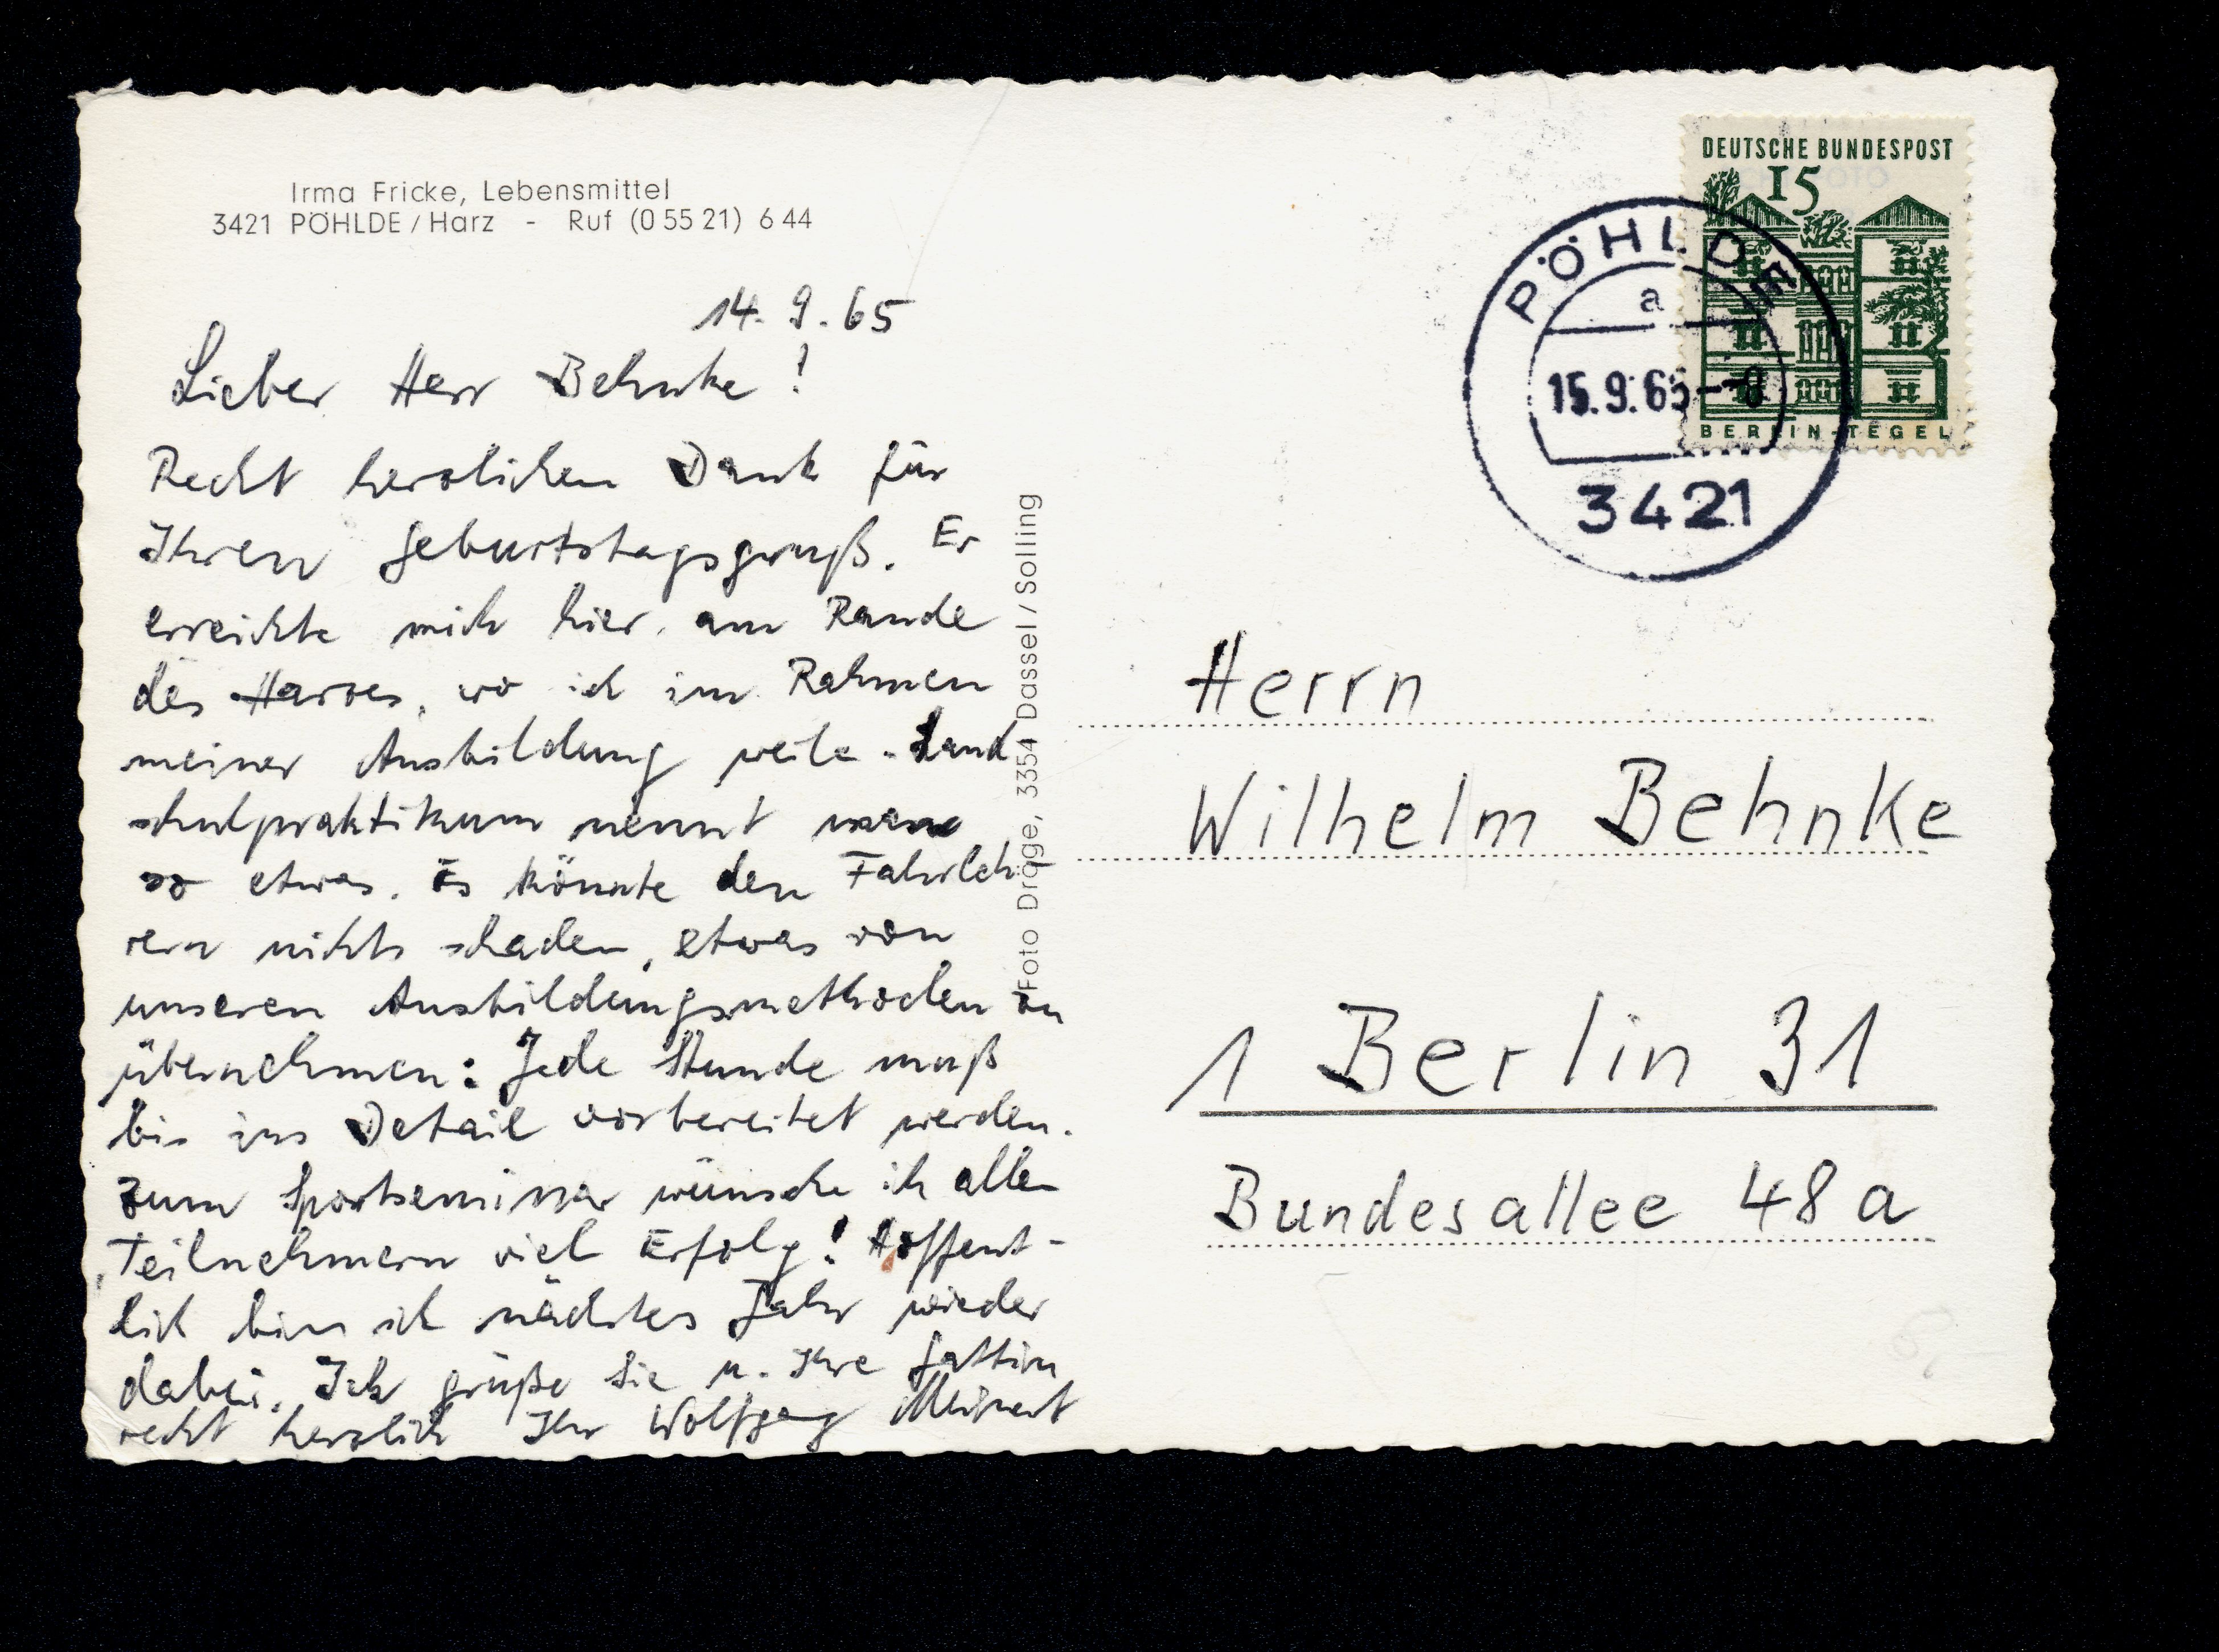 Irma Fricke, Lebensmittel
3421 PÖHLDE / Harz - Ruf (0 55 21) 6 44
14. 9. 65
Lieber Herr Behnke!
Recht herzlichen Dank für
Ihren Geburtstagsgruß. Er
erreichte mich hier am Rande
des Harzes, wo ich im Rahmen
meiner Ausbildung weile. Land
schulpraktikum nennt man
so etwas. Es könnte den Fahrleh-
rern nichts schaden, etwas von
unseren Ausbildungsmethoden zu
übernehmen: Jede Stunde muß
bis ins Detail vorbereitet werden.
Zum Sportseminar wünsche ich allen
Teilnehmern viel Erfolg! Hoffent-
lich bin ich nächstes Jahr wieder
dabei. Ich grüße Sie u. Ihre Gattin
recht herzlich Ihr Wolfgang
Foto Dröge, 3354 Dassel / Solling
DEUTSCHE BUNDESPOST
15
BERLIN-TEGEL
PÖHLDE
a
15.9.65-8
3421
Herrn
Wilhelm Behnke
1 Berlin 31
Bundesallee 48a